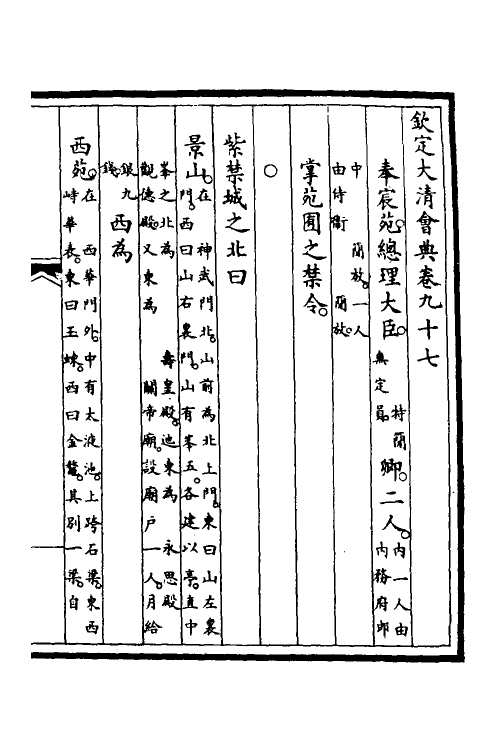 欽定大清會典卷九十七
奉宸苑。總理大臣。無定員。特簡卿。二人。內一人由內務府郎
中簡放。一人由侍衛簡放。
掌苑囿之禁令。
○
紫禁城之北曰
景山。在神武門北。山前為北上門。東曰山左裏門。西曰山右裏門。山有峯五。各建以亭。直中
峯之北為壽皇殿。迤東為永思殿觀德殿。又東為關帝廟。設廟戶一人。月給
銀九錢。西為
西苑。在西華門外。中有太液池。上跨石梁。東西峙華表。東曰玉蝀。西曰金鰲。其別一梁。自